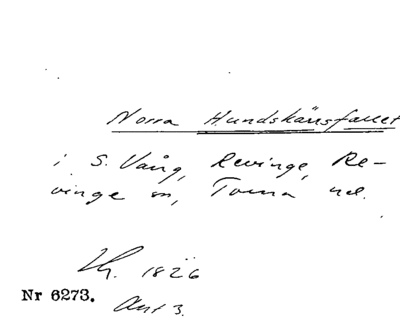 Norra Hundskärrsfallet
i S. Vång, Revinge, Re-
vinge sn, Torna hd.
1826
Nr 6273.
Akt 3.